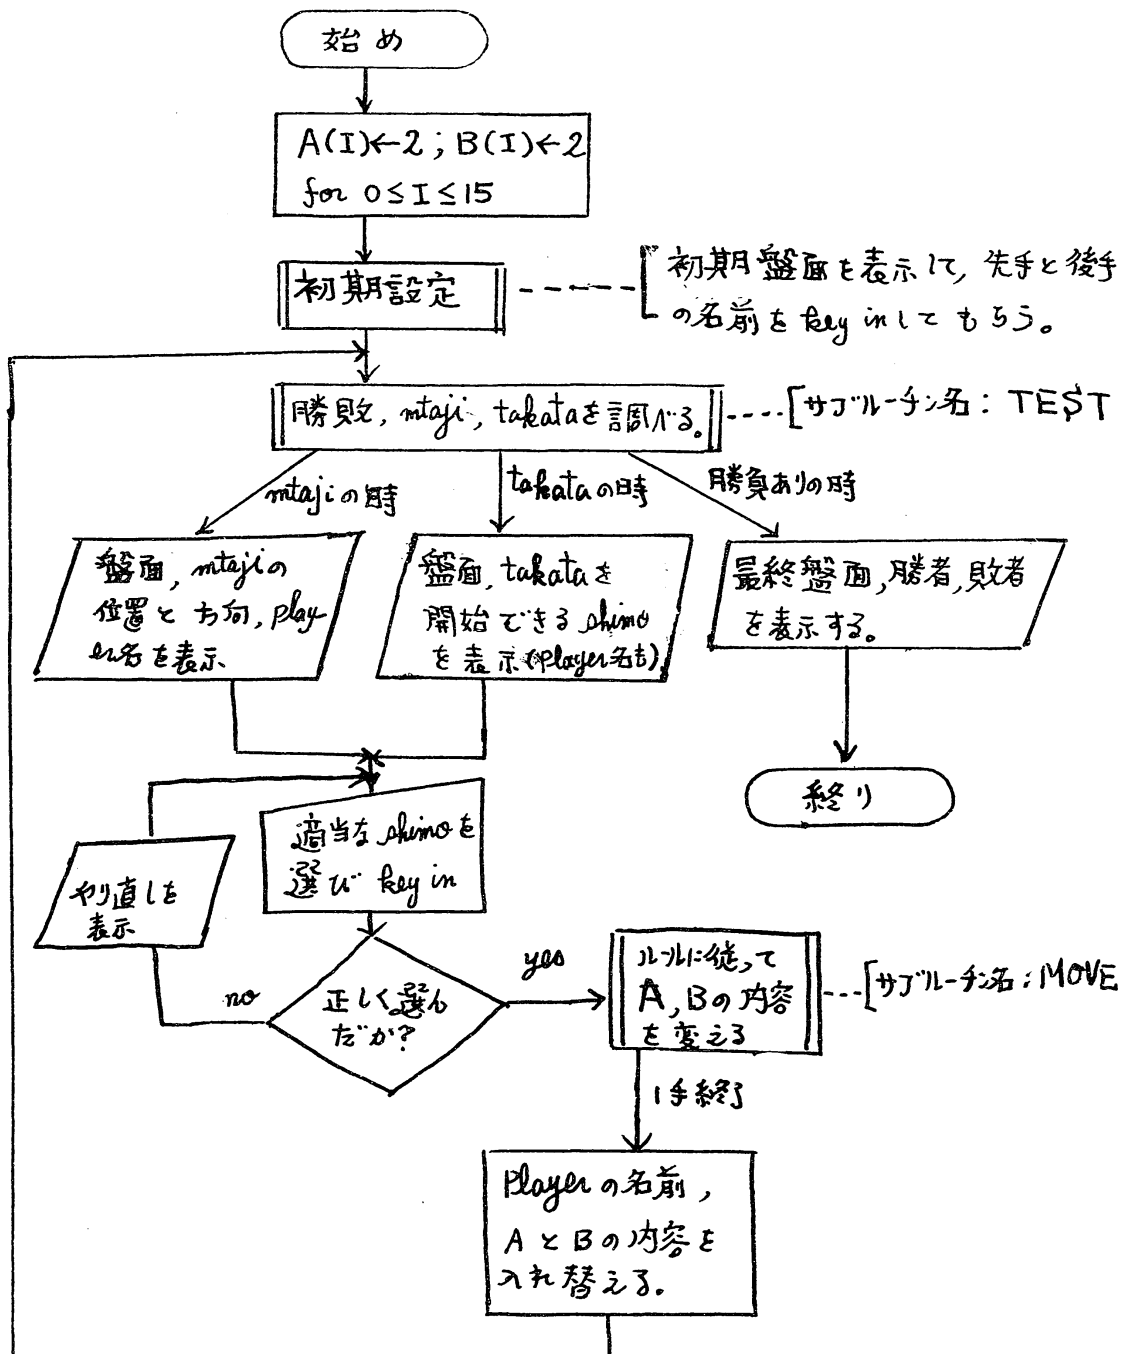 始め
A(I)←2 ; B(I)←2
for 0≤I≤15
初期設定
初期盤面を表示して, 先手と後手
の名前をkey inしてもらう。
勝敗, mtaji, takataを調べる。
サブルーチン名: TEST
mtajiの時
takataの時
勝負ありの時
盤面, mtajiの
位置と方向, play
er名を表示
盤面, takataを
開始できるshimo
を表示(player名も)
最終盤面, 勝者, 敗者
を表示する。
終り
適当なshimoを
選び key in
やり直しを
表示
正しく選ん
だか?
no
yes
ルールに従って
A, Bの内容
を変える
サブルーチン名: MOVE
1手終了
Playerの名前,
AとBの内容を
入れ替える。